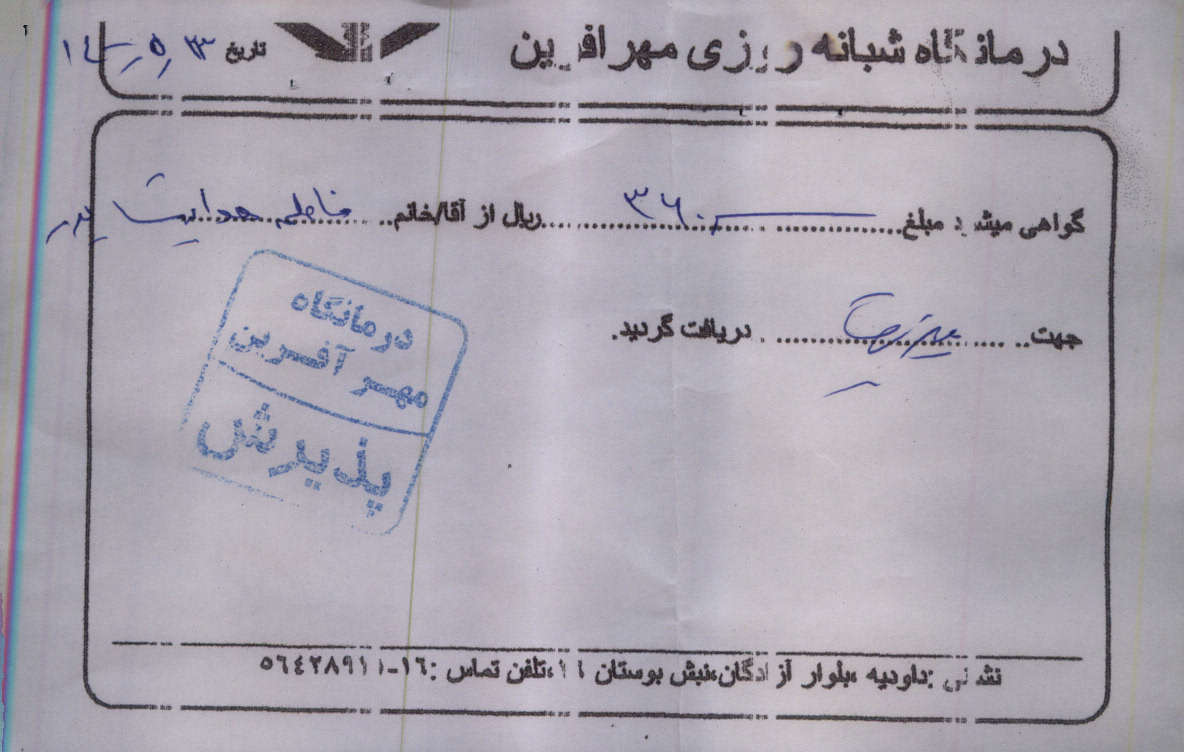 درمانگاه شبانه روزی مهرافرین
تاریخ
گواهی میشود مبلغ ۳۶۰ ریال از آقا/خانم هدایت
جهت دریافت گردید.
درمانگاه
مهر آفرین
پذیرش
نشانی :داودیه ،بلوار آزادگان،نبش بوستان ،تلفن تماس :۱۶-۵۶۴۲۸۹۱۱